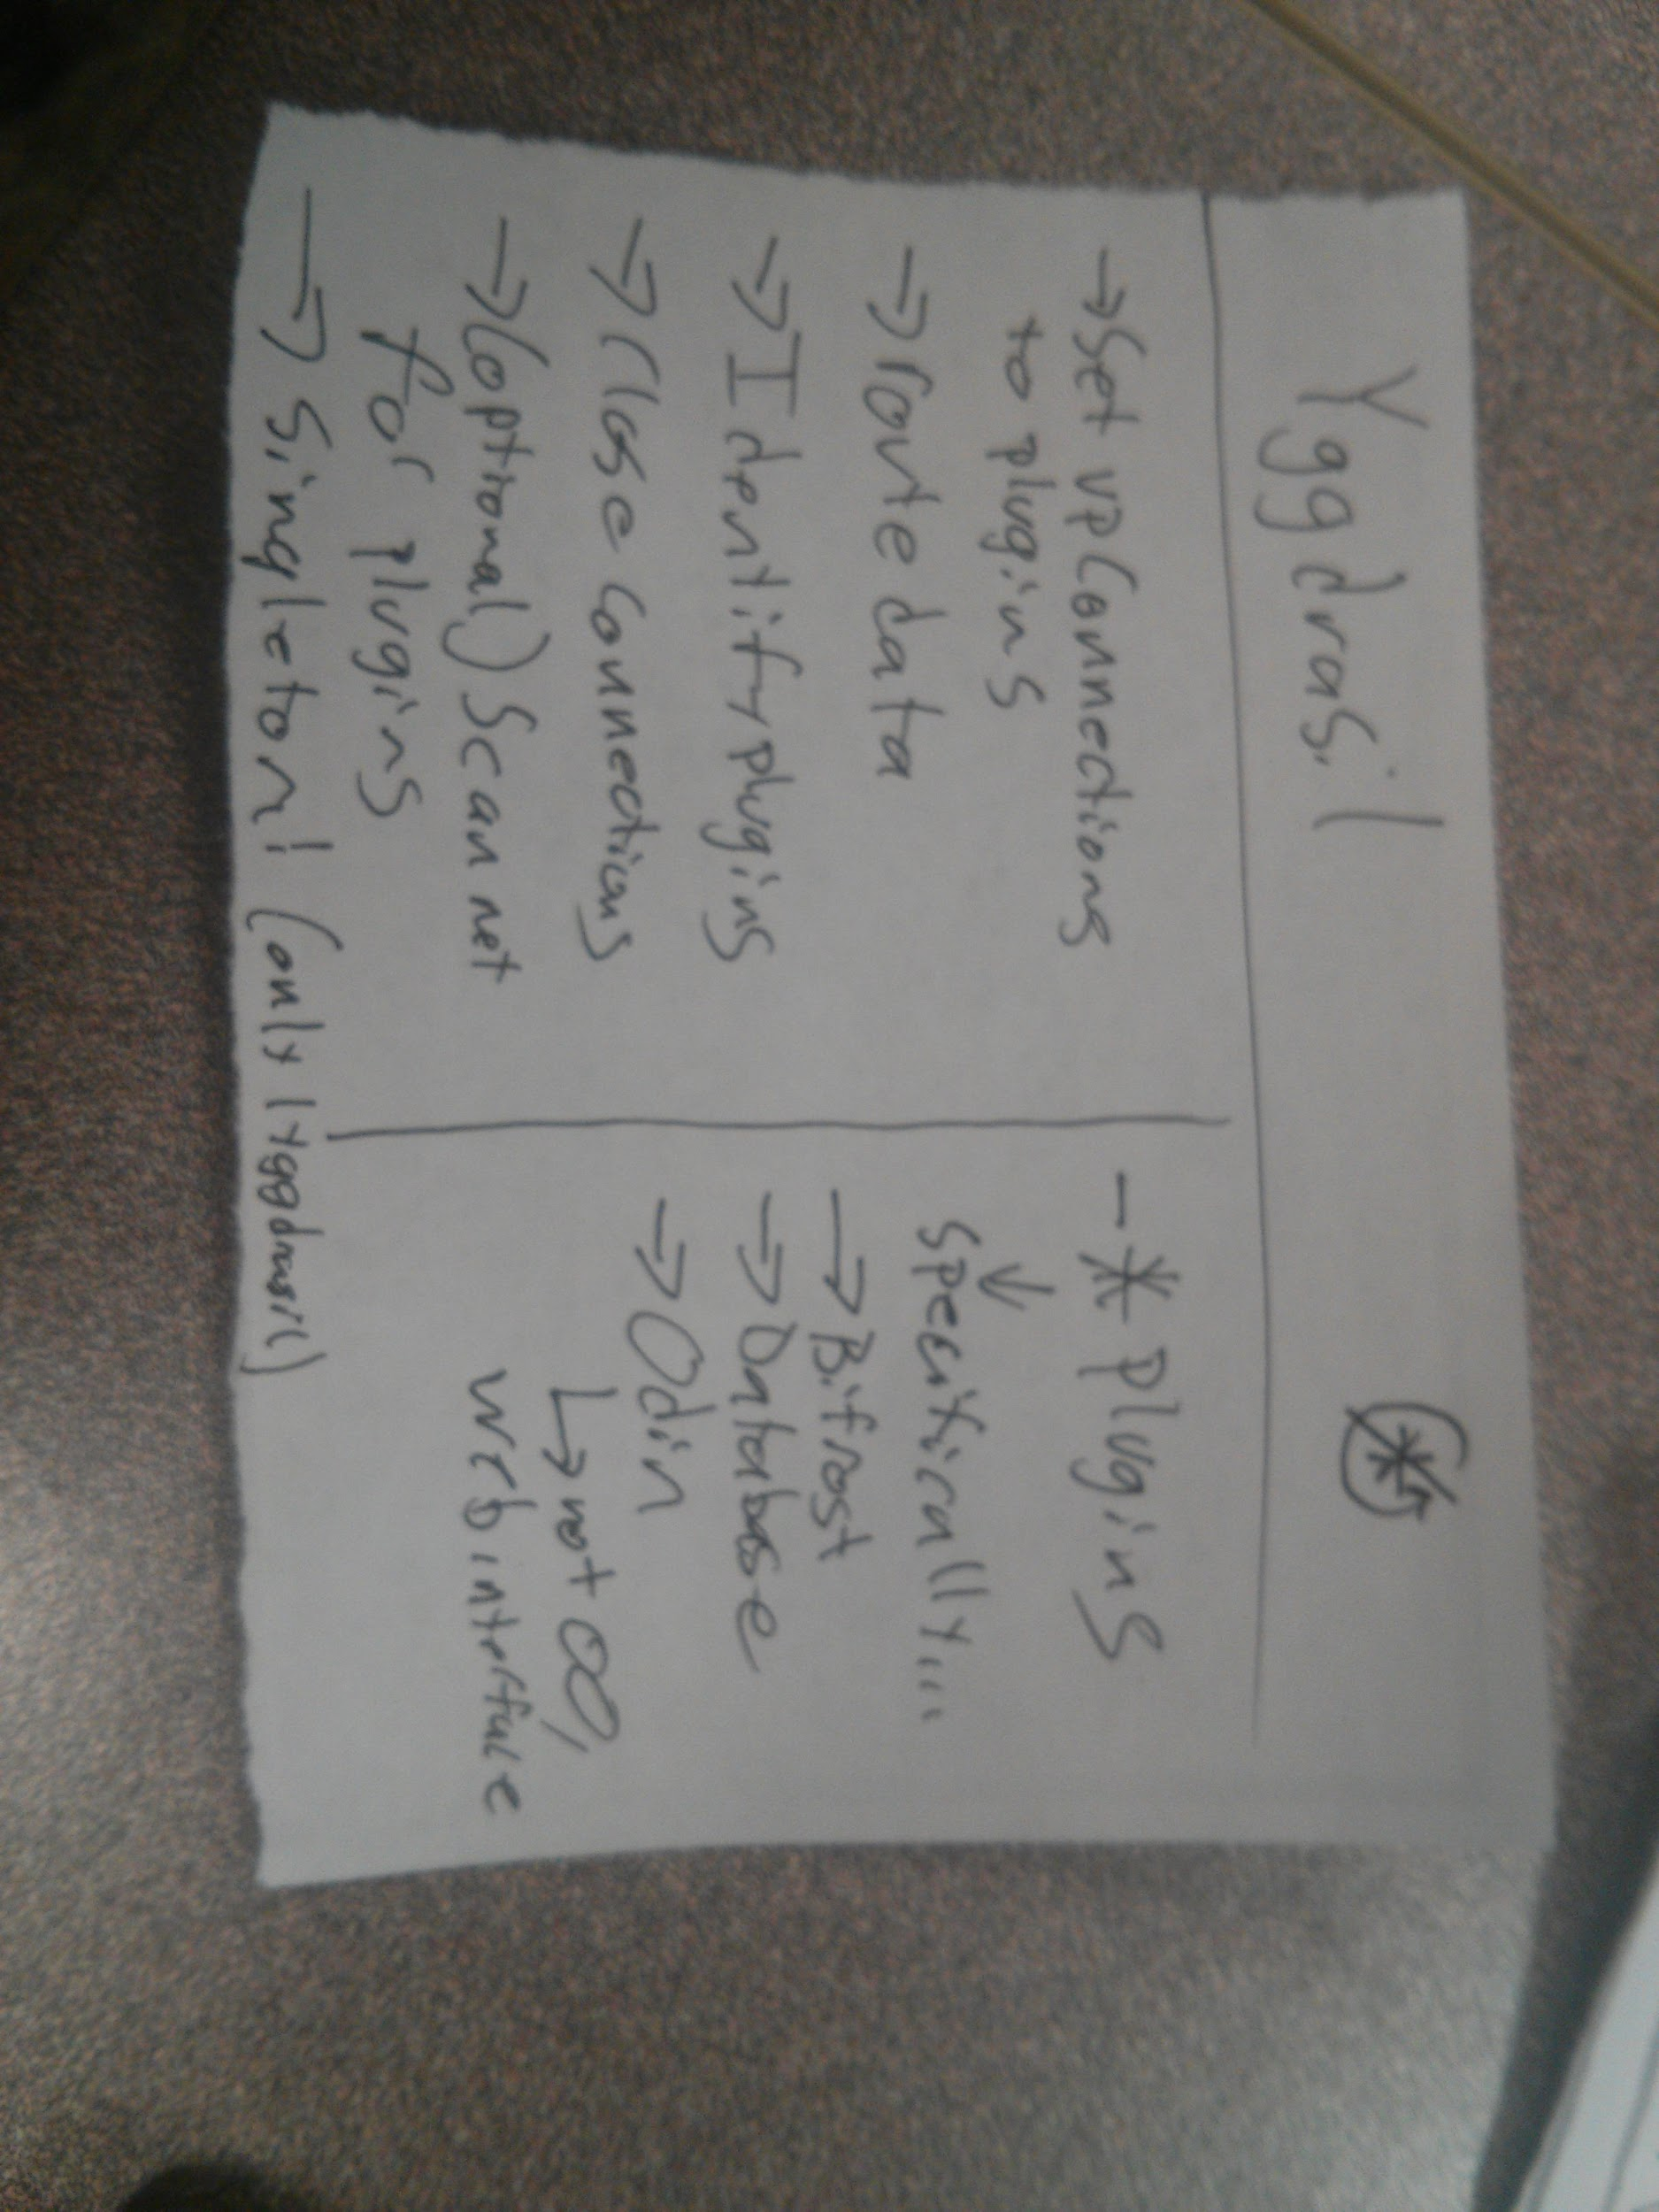 Yggdrasil
→ Set up Connections
to plugins
→ route data
→ Identify plugins
→ Close Connections
→ (optional) Scan net
for plugins
→ Singleton! (only 1 Yggdrasil)
- * plugins
↓
Specifically...
→ Bifrost
→ Database
→ Odin
↳ not OO,
web interface